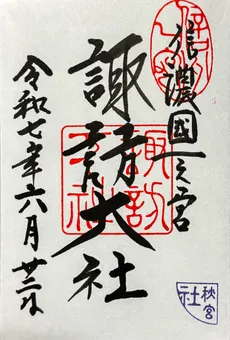 信濃國一之宮
諏訪大社
令和七年六月廿三日
諏訪大社
秋宮
社